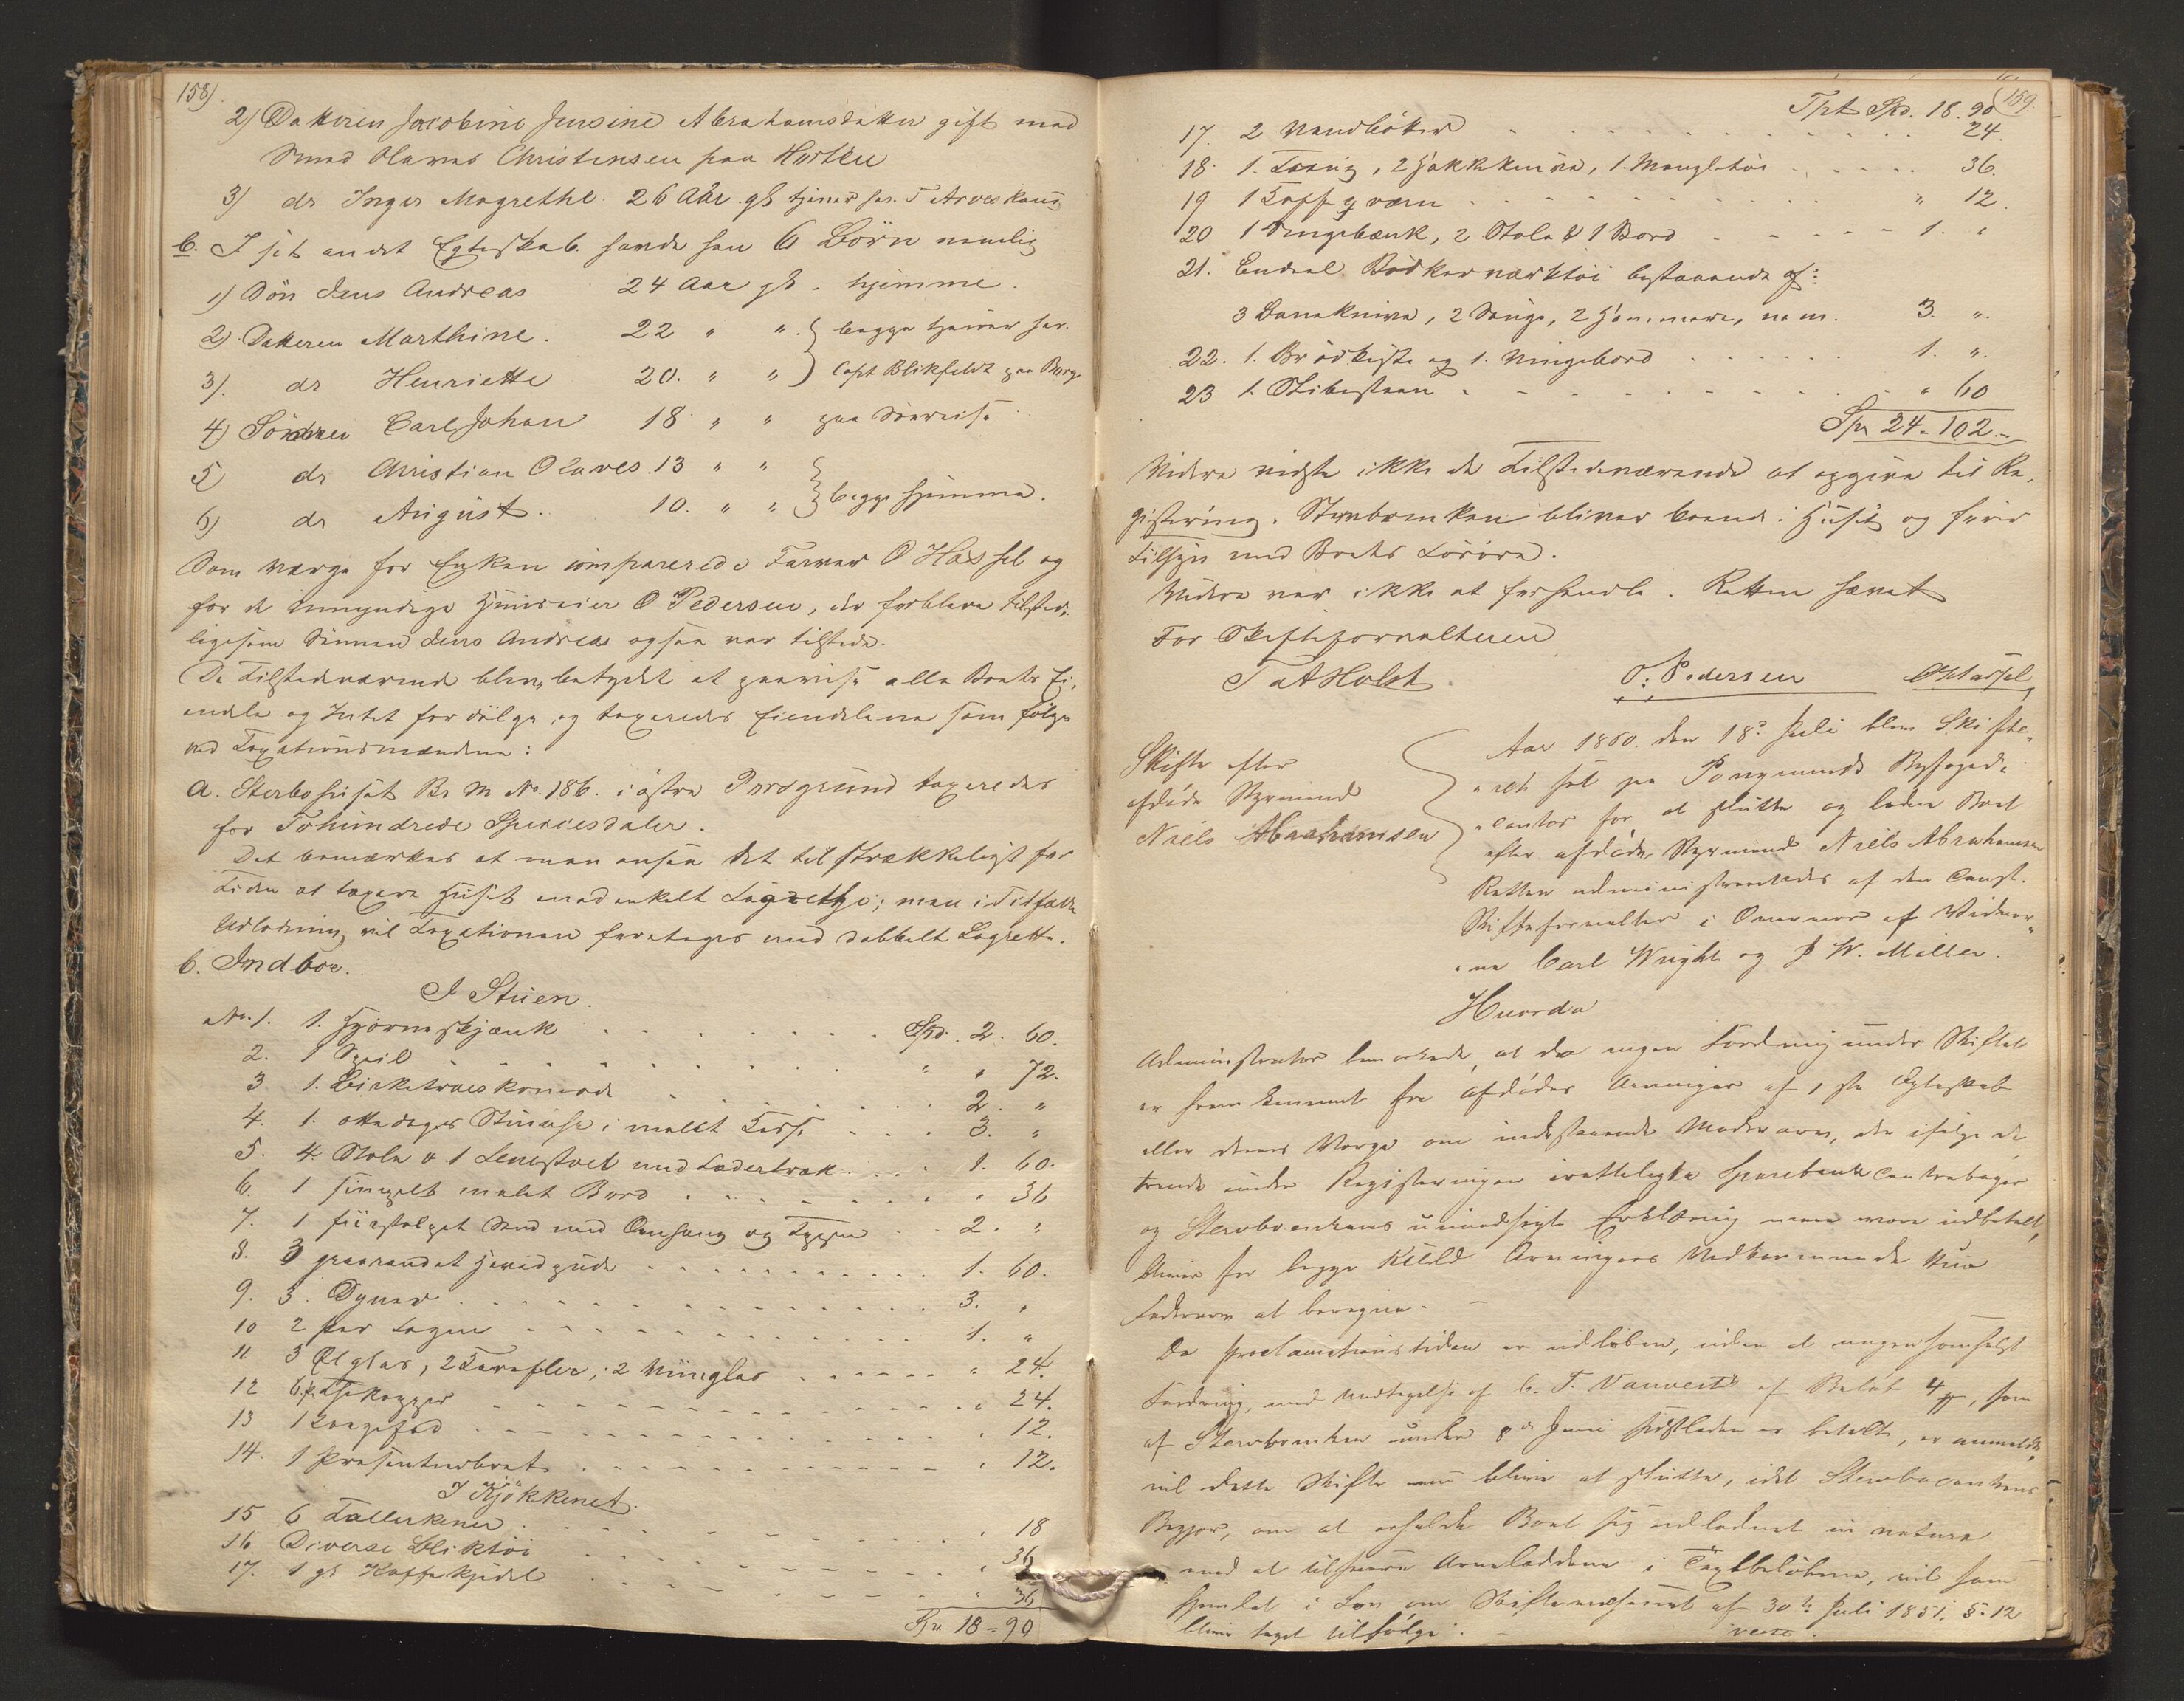 158)
2) Datteren Jacobine Jensine Abrahamsdatter gift med
Smed Olaves Christensen paa Horten
3) do Inger Magrethe 26 Aar gl tjener hos T. Arveskoug
b. I sit andet Egteskab havde han 6 Börn nemlig
1) Sön Jens Andreas 24 Aar gl. hjemme.
2) Datteren Marthine. 22 " " } begge tjener hos
3). do Henriette 20. " " } Capt Blikfeldt paa Borge
4) Sönnen Carl Johan 18 " " paa Söereise
5) do Christian Olaves. 13 " " }
6) do August. 10. " " } begge hjemme.
Som værge for Enken comparerede Farver O Hassel og
for de umyndige Huuseier O Pedersen, der forbleve tilstede,
ligesom Sönnen Jens Andreas ogsaa var tilstede.
De Tilstedeværende blev betydet at paavise alle Boets Ei-
endele og Intet fordölge, og taxeredes Eiendelene som fölger
ved Taxationsmændene:
a. Sterbohuset Br M No. 186. i östre Porsgrund taxeredes
for Tohundrede Speciesdaler.
Det bemærkes at man ansaa det tilstrækkeligt for
Tiden at taxere Huset med enkelt Lagrette; men i Tilfælde
Udlodning vil Taxationen foretages med dobbelt Lagrette.
b. Indboe.
I Stuen.
No. 1. 1. Hjörneskjænk Spd. 2. 60.
2. 1 Speil " " 72.
3 1. Birketræes komode 2. "
4. 1. ottedages Stueuhr i malet Casse 3. "
5. 4. Stole & 1 Lenestoel med Lædertræk 1. 60.
6. 1 simpelt malet Bord " 36
7. 1 fiirstolpet Seng med Omhæng og Teppe 2. "
8. 3 graarandet Hovedpude 1. 60.
9. 3. Dyner 3. "
10 2 par Lagen 1. "
11 3 Ölglas, 2 Karafler, 2 Viinglas " 24.
12 6 p. Thekopper " 24.
13 1 Kagefad " 12.
14. 1 Presenteerbret " 12.
I Kjökkenet.
15 6 Tallerkener " 18
16. Diverse Bliktöi " 36
17. 1 gl Kaffekjedel " 36
Spd. 18 = 90
159.
Tprt Spd. 18. 90
17. 2 Vandbötter 24.
18. 1. Traug, 2 Hakkknive, 1. Mangletöi 36.
19 1 Kaffeqværn " 12.
20 1 Slagebænk, 2 Stole & 1 Bord 1. "
21. Endeel Bödkerværktöi bestaaende af:
3 Baneknive, 2 Sauge, 2 Hammere, m. m. 3. ".
22. 1. Brödkiste og 1. Vingebord 1. ".
23 1. Slibesteen " 60
Spd 24. 102.
Videre vidste ikke de Tilstedeværende at opgive til Re-
gistering. Stervboenken bliver boende i Huset og fører
Tilsyn med Boets Lösöre.
Videre var ikke at forhandle. Retten hævet
For Skifteforvalteren
T A Holst O. Pedersen O Hassel
Skifte efter
afdöde Styrmand
Niels Abrahamsen
Aar 1860. den 18de Juli blev Skifte-
ret sat paa Porsgrunds Byfoged-
contor for at slutte og lodde Boet
efter afdöde Styrmand Niels Abrahamsen
Retten administreredes af den const.
Skifteforvalter i Overvær af Vidner-
ne Carl Wright og J W. Møller.
Hvorda
Administrator bemærkede, at da ingen Fordring under Skiftet
er fremkommet fra afdödes Arvinger af 1ste Egteskab
eller deres Værge om indestaaende Mödrearv, der ifølge de
trende under Registeringen irettelagte Sparebank Contrabøger
og Stervboenkens uimodsigte Erklæring maa være udbetalt,
bliver for begge Kuld Arvingers Vedkommende kun
Fædrearv at beregne.
Da Proclamationstiden er udlöben, uden at nogensomhelst
Fordring, med Undtagelse af C. T. Vauverts af Belöb 4 #, som
af Stervboenken under 8de Juni sidstleden er betalt, er anmeldt,
vil dette Skifte nu blive at slutte, idet Stervboenkens
Begjær, om at erholde Boet sig udloddet in natura
mod at tilsvare Arvelodderne i Taxtbelöbene, vil som
hjemlet i Lov om Skiftevæsenet af 30te Juli 1851, § 12
blive taget tilfölge.